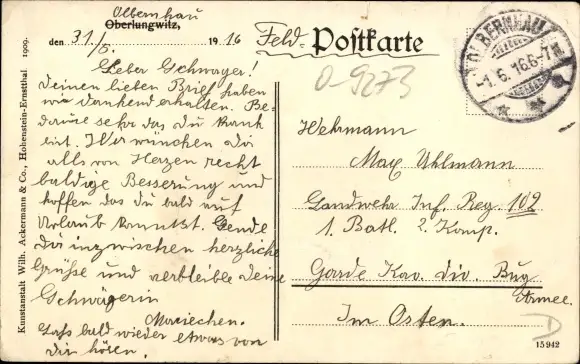 Olbernhau
Oberlungwitz,
den 31./5. 1916
Lieber Schwager!
Deinen lieben Brief haben
wir dankend erhalten. Be-
daure sehr das du krank
bist. Wir wünchen dir
alls von Herzen recht
baldige Besserung und
hoffen das du bald auf
Urlaub konntst. Sende
Dir inzwischen herzliche
Grüsse und verbleibe deine
Schwägerin
Mariechen.
Lass bald wieder etwas von
dir hören.
Kunstanstalt Wilh. Ackermann & Co., Hohenstein-Ernstthal 1909.
Feld-Postkarte
O-9273
OLBERNHAU
-1.6.16.6-7N.
Wehrmann
Max Uhlmann
Landwehr Inf. Reg. 102
1. Batl. 2. Komp.
Garde Kav. Div. Bug
Armee.
Im Osten.
D
15942